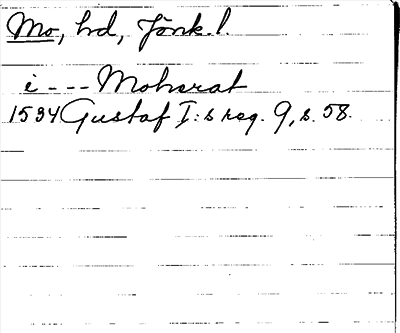 Mo, hd, Jönk. l.
i - - - Moherat
1534 Gustaf I:s reg. 9, s. 58.